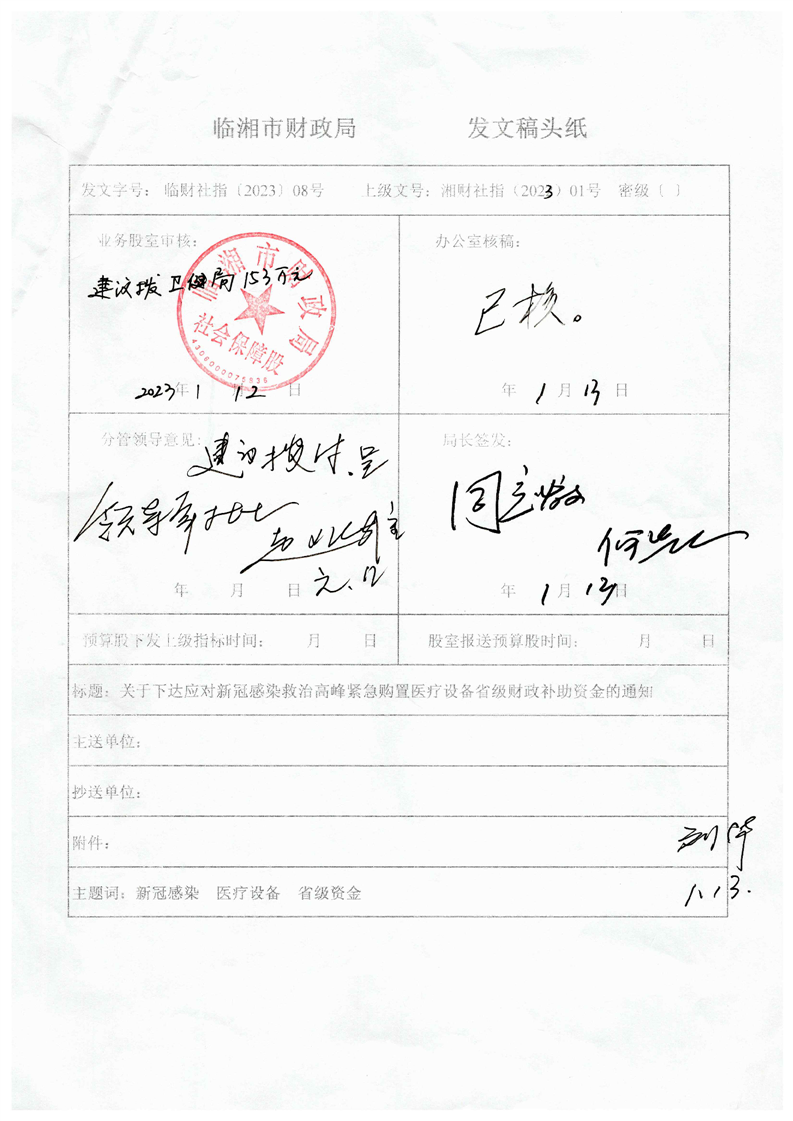 临湘市财政局 发文稿头纸
发文字号：临财社指〔2023〕08号 上级文号：湘财社指（2023）01号 密级〔 〕
业务股室审核：
建议拨卫健局153万元
临湘市财政局
社会保障股
4306000075836
2023年1 12日
办公室核稿：
已核。
年1月13日
分管领导意见：
建议拨付.呈
领导审批
年 月 日
局长签发：
同意拨
年1月13日
预算股下发上级指标时间： 月 日 股室报送预算股时间： 月 日
标题：关于下达应对新冠感染救治高峰紧急购置医疗设备省级财政补助资金的通知
主送单位：
抄送单位：
附件：
主题词：新冠感染 医疗设备 省级资金
1.13.